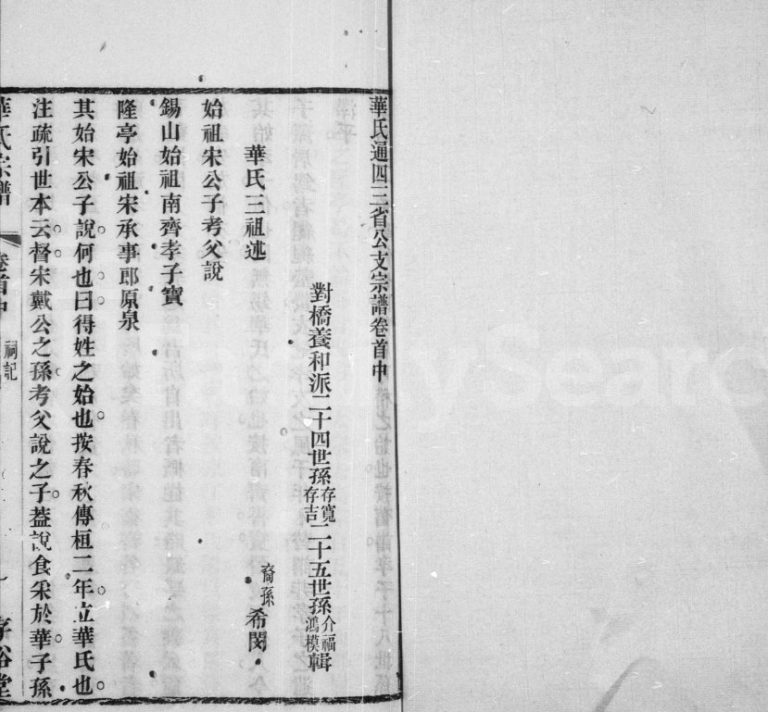 華氏通四三省公支宗譜卷首中
對橋養和派二十四世孫存寬存吉二十五世孫介福鴻模輯
華氏三祖述
裔孫希閔
始祖宋公子考父說
錫山始祖南齊孝子寳
隆亭始祖宋承事郎原泉
其始宋公子說何也曰得姓之始也按春秋傳桓二年立華氏也
注疏引世本云督宋戴公之孫考父說之子蓋說食采於華子孫
華氏宗譜
卷首中
祠記
一
存裕堂